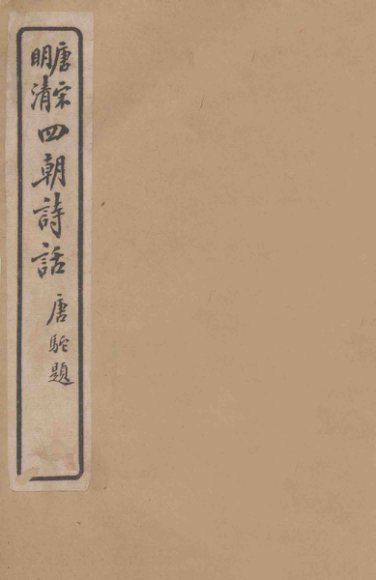 唐宋
明清
四朝詩話
唐駝題